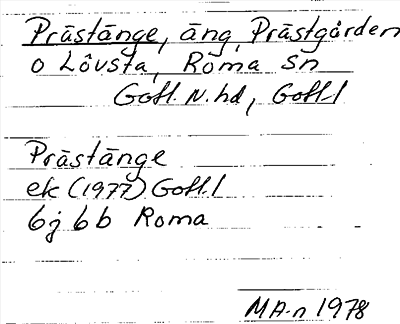 Prästänge, äng, Prästgården
o Lövsta, Roma sn
Gotl. N. hd, Gotl. l
Prästänge
ek (1977) Gotl. l
6j 6b Roma
MA-n 1978